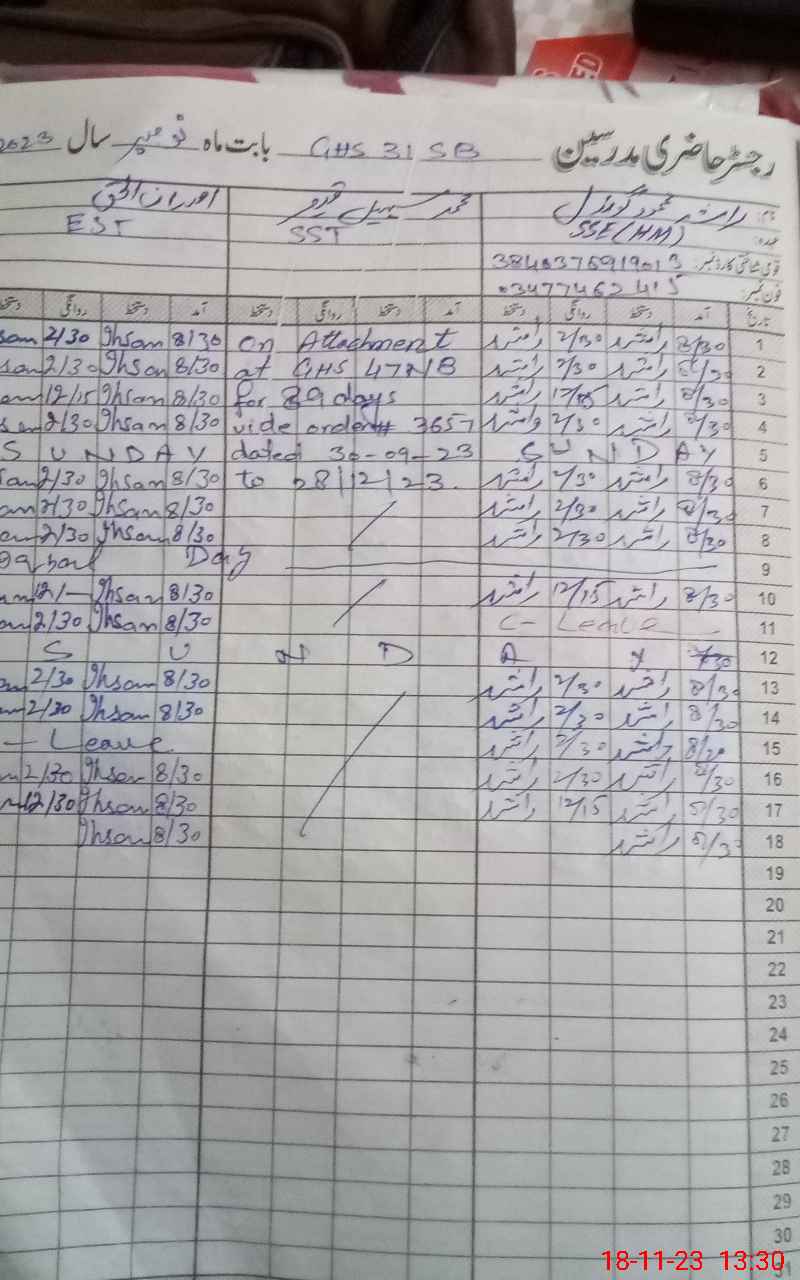 رجسٹر حاضری مدرسین GHS 31 SB بابت ماہ نومبر سال 2023
نام: راشد محمود گوندل محمد سہیل
عہدہ: SSE(HM) SST EST
قومی شناختی کارڈ نمبر:
فون نمبر: 03477462415
تاریخ آمد دستخط روانگی دستخط آمد دستخط روانگی دستخط آمد دستخط روانگی
1 8/30 راشد 2/30 راشد On Attachment 8/30 Ihsan 2/30
2 8/30 راشد 2/30 راشد at GHS 47NB 8/30 Ihsan 2/30
3 8/30 راشد 12/15 راشد for 89 days 8/30 Ihsan 12/15
4 8/30 راشد 2/30 راشد vide order# 3657 8/30 Ihsan 2/30
5 SUNDAY dated 30-09-23 SUNDAY
6 8/30 راشد 2/30 راشد to 28/12/23. 8/30 Ihsan 2/30
7 8/30 راشد 2/30 راشد 8/30 Ihsan 2/30
8 8/30 راشد 2/30 راشد 8/30 Ihsan 2/30
9 Day
10 8/30 راشد 12/15 راشد 8/30 Ihsan 12/-
11 C-Leave 8/30 Ihsan 2/30
12 S U N D A Y
13 8/30 راشد 2/30 راشد 8/30 Ihsan 2/30
14 8/30 راشد 2/30 راشد 8/30 Ihsan 2/30
15 8/30 راشد 2/30 راشد - Leave
16 8/30 راشد 2/30 راشد 8/30 Ihsan 2/30
17 8/30 راشد 12/15 راشد 8/30 Ihsan 12/30
18 8/30 راشد 8/30 Ihsan
19
20
21
22
23
24
25
26
27
28
29
30
31
18-11-23 13:30